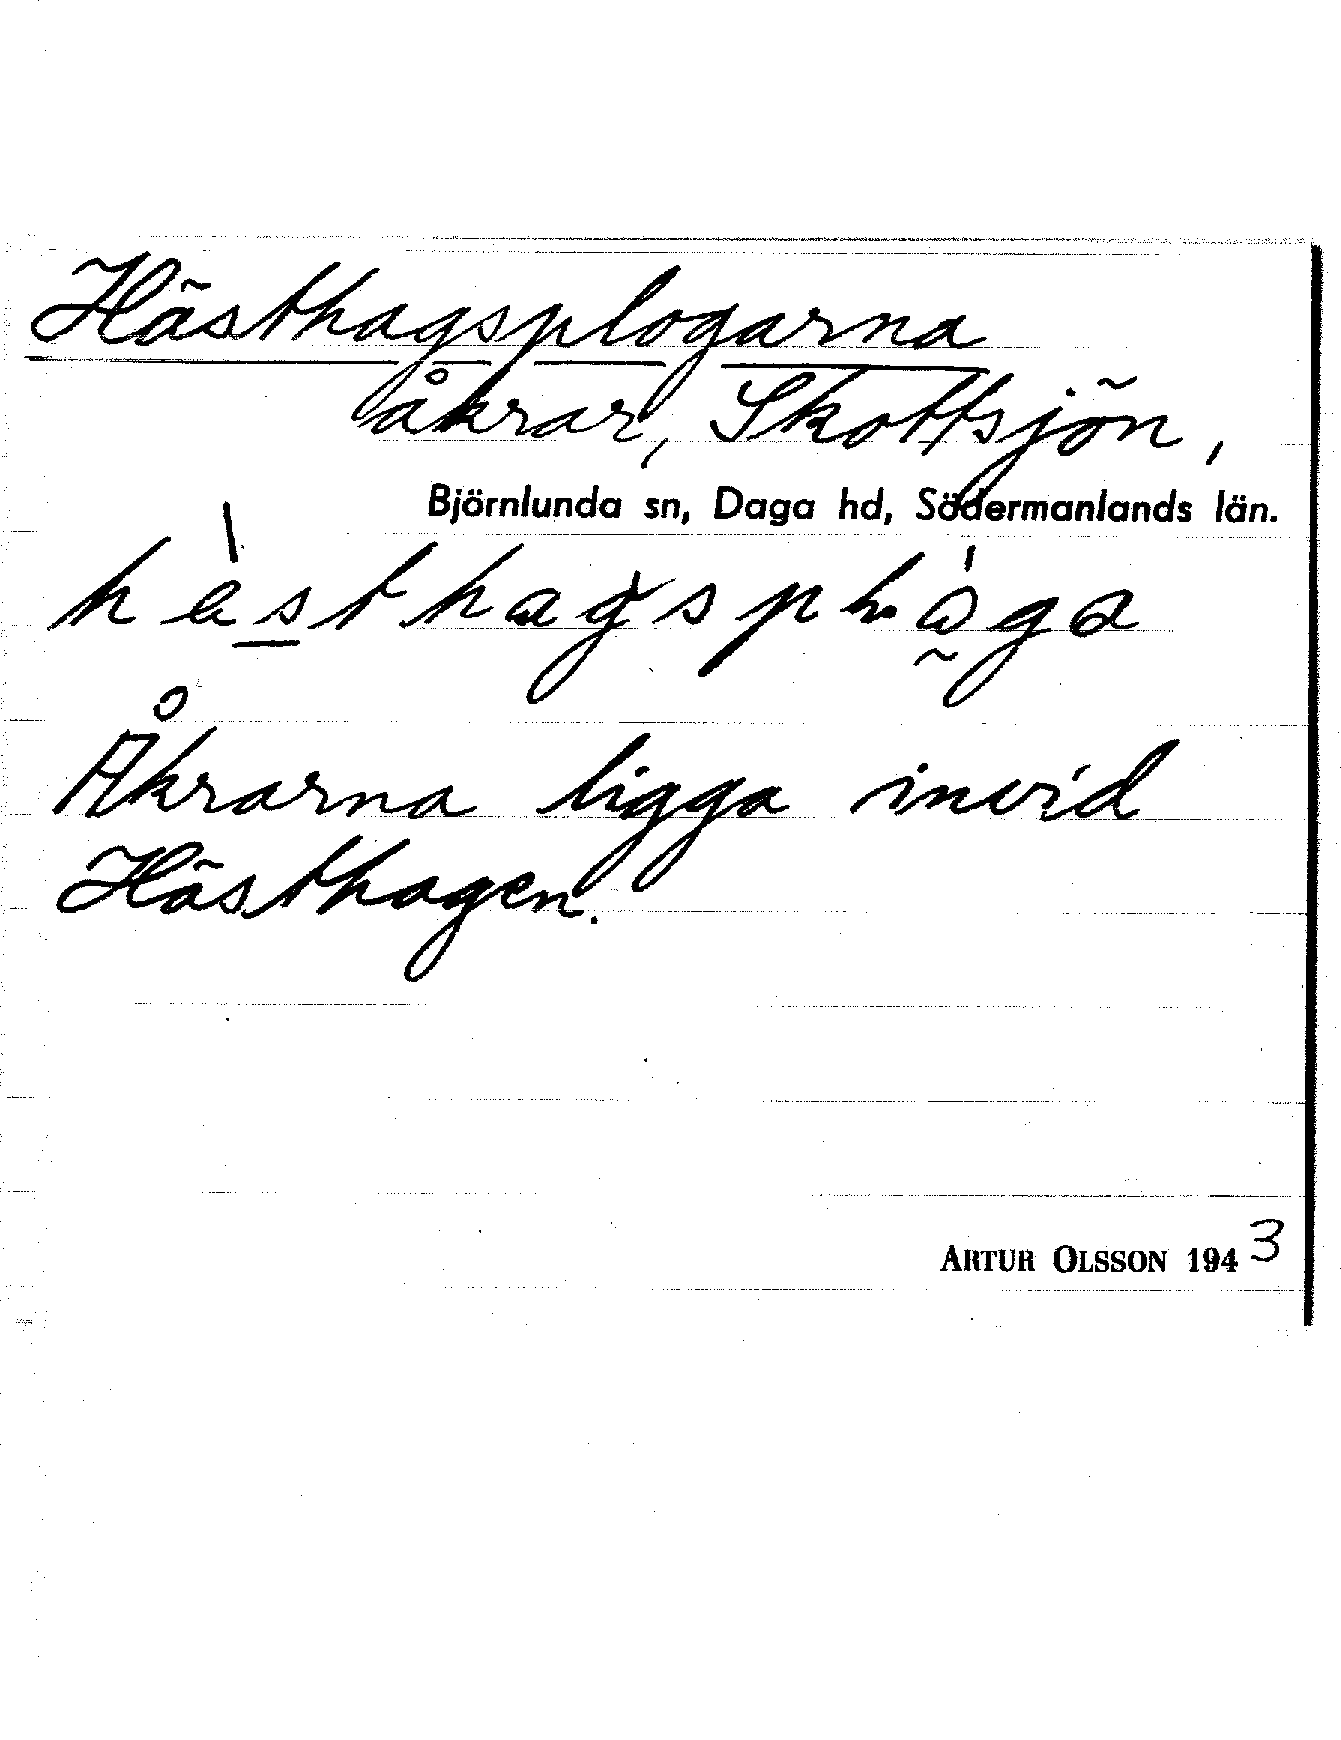 Hästhagsplogarna
åkrar, Skottsjön,
Björnlunda sn, Daga hd, Södermanlands län.
Åkrarna ligga invid
Hästhagen.
ARTUR OLSSON 1943